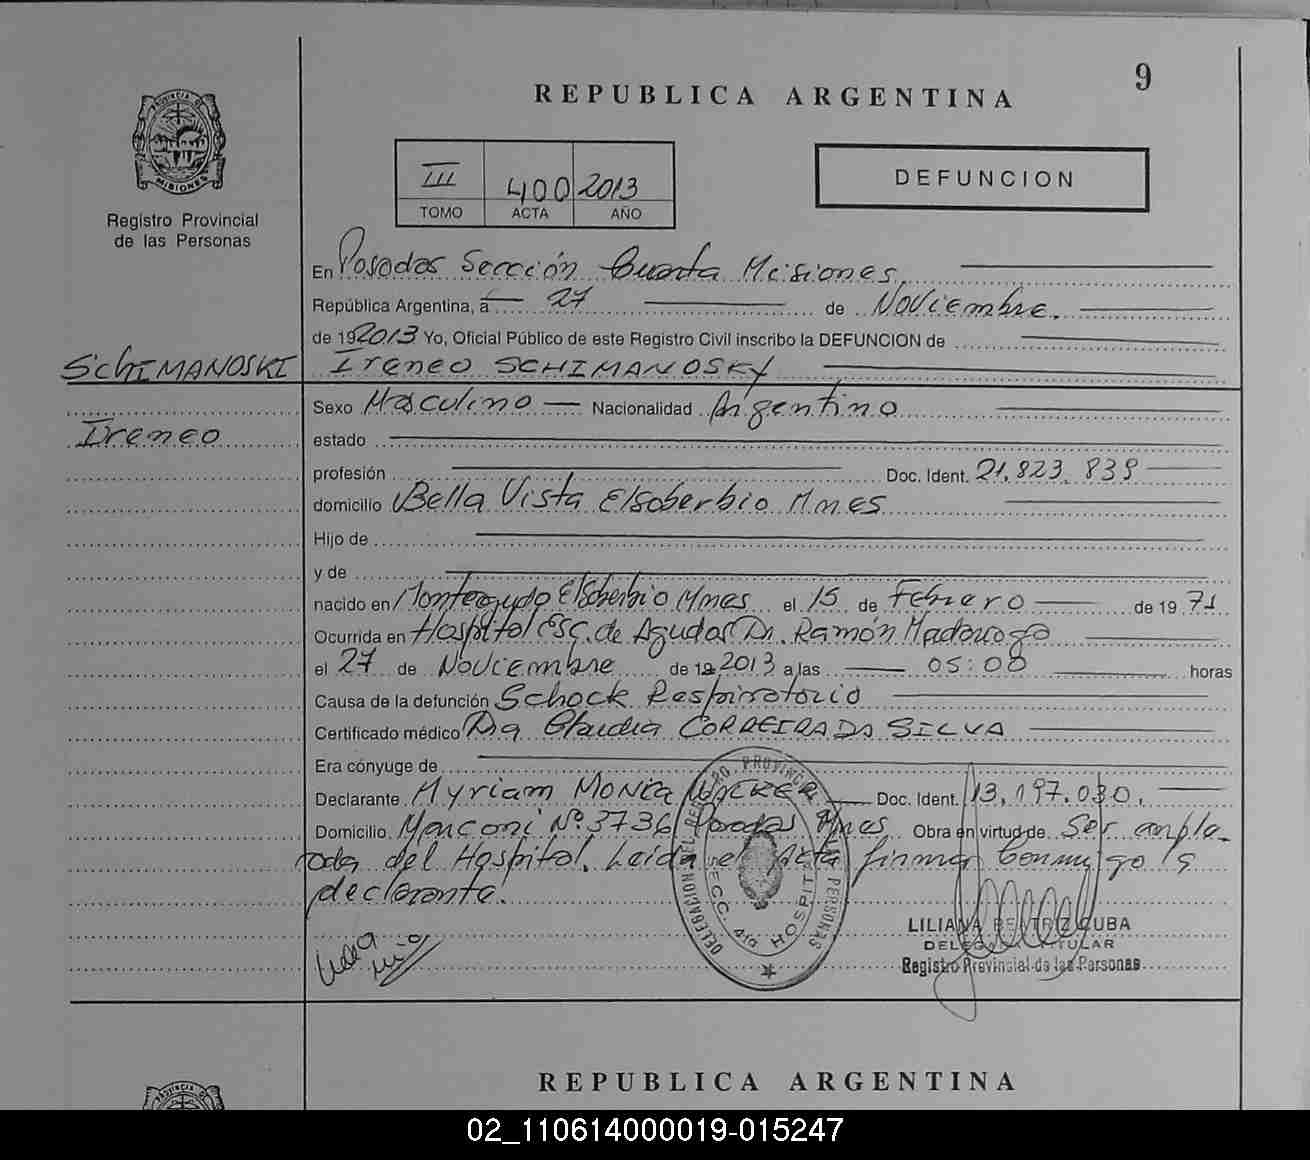 9
REPUBLICA ARGENTINA
PROVINCIA DE
MISIONES
Registro Provincial
de las Personas
III 400 2013
TOMO ACTA AÑO
DEFUNCION
En Posadas Sección Cuarta Misiones,
República Argentina, a 27 de Noviembre.
de 192013 Yo, Oficial Público de este Registro Civil inscribo la DEFUNCION de
SCHIMANOSKI Ireneo SCHIMANOSKY
Sexo Masculino Nacionalidad Argentino
Ireneo
estado
profesión Doc. Ident. 21.823.839
domicilio Bella Vista Elsoberbio Mnes
Hijo de
y de
nacido en Monteagudo Elsoberbio Mnes el 15 de Febrero de 19 71
Ocurrida en Hospital Esc. de Agudos Dr. Ramón Madariaga
el 27 de Noviembre de 192013 a las 05:00 horas
Causa de la defunción Schock Respiratorio
Certificado médico Dra Claudia CORREIRADA SILVA
Era cónyuge de
Declarante Myriam Doc. Ident. 13.197.030.
Domicilio Marconi Nº 3736 Posadas Mnes Obra en virtud de Ser emplea-
da del Hospital. Leída el Acta firma conmigo la
declarante.
DELEGACION DEL REGISTRO PROVINCIAL DE LAS PERSONAS
SECC. 4ta HOSPITAL
LILIANA BEATRIZ CUBA
DELEGADA TITULAR
Registro Provincial de las Personas
REPUBLICA ARGENTINA
PROVINCIA DE
02_110614000019-015247